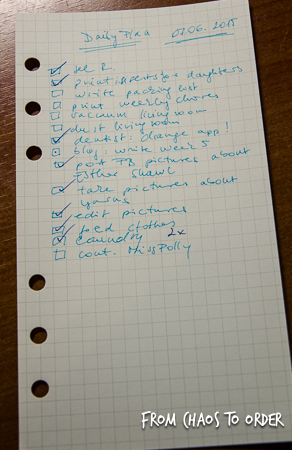 Daily Plan 07.06.2015
see R.
print sheets for daughters
write packing list
print weekly chores
vacuum living room
dust living room
dentist: change app!
blog: write week 5
post FB pictures about
Esther Shawl
take pictures about
yarns
edit pictures
fold clothes
laundry 2x
cont. Miss Polly
FROM CHAOS TO ORDER